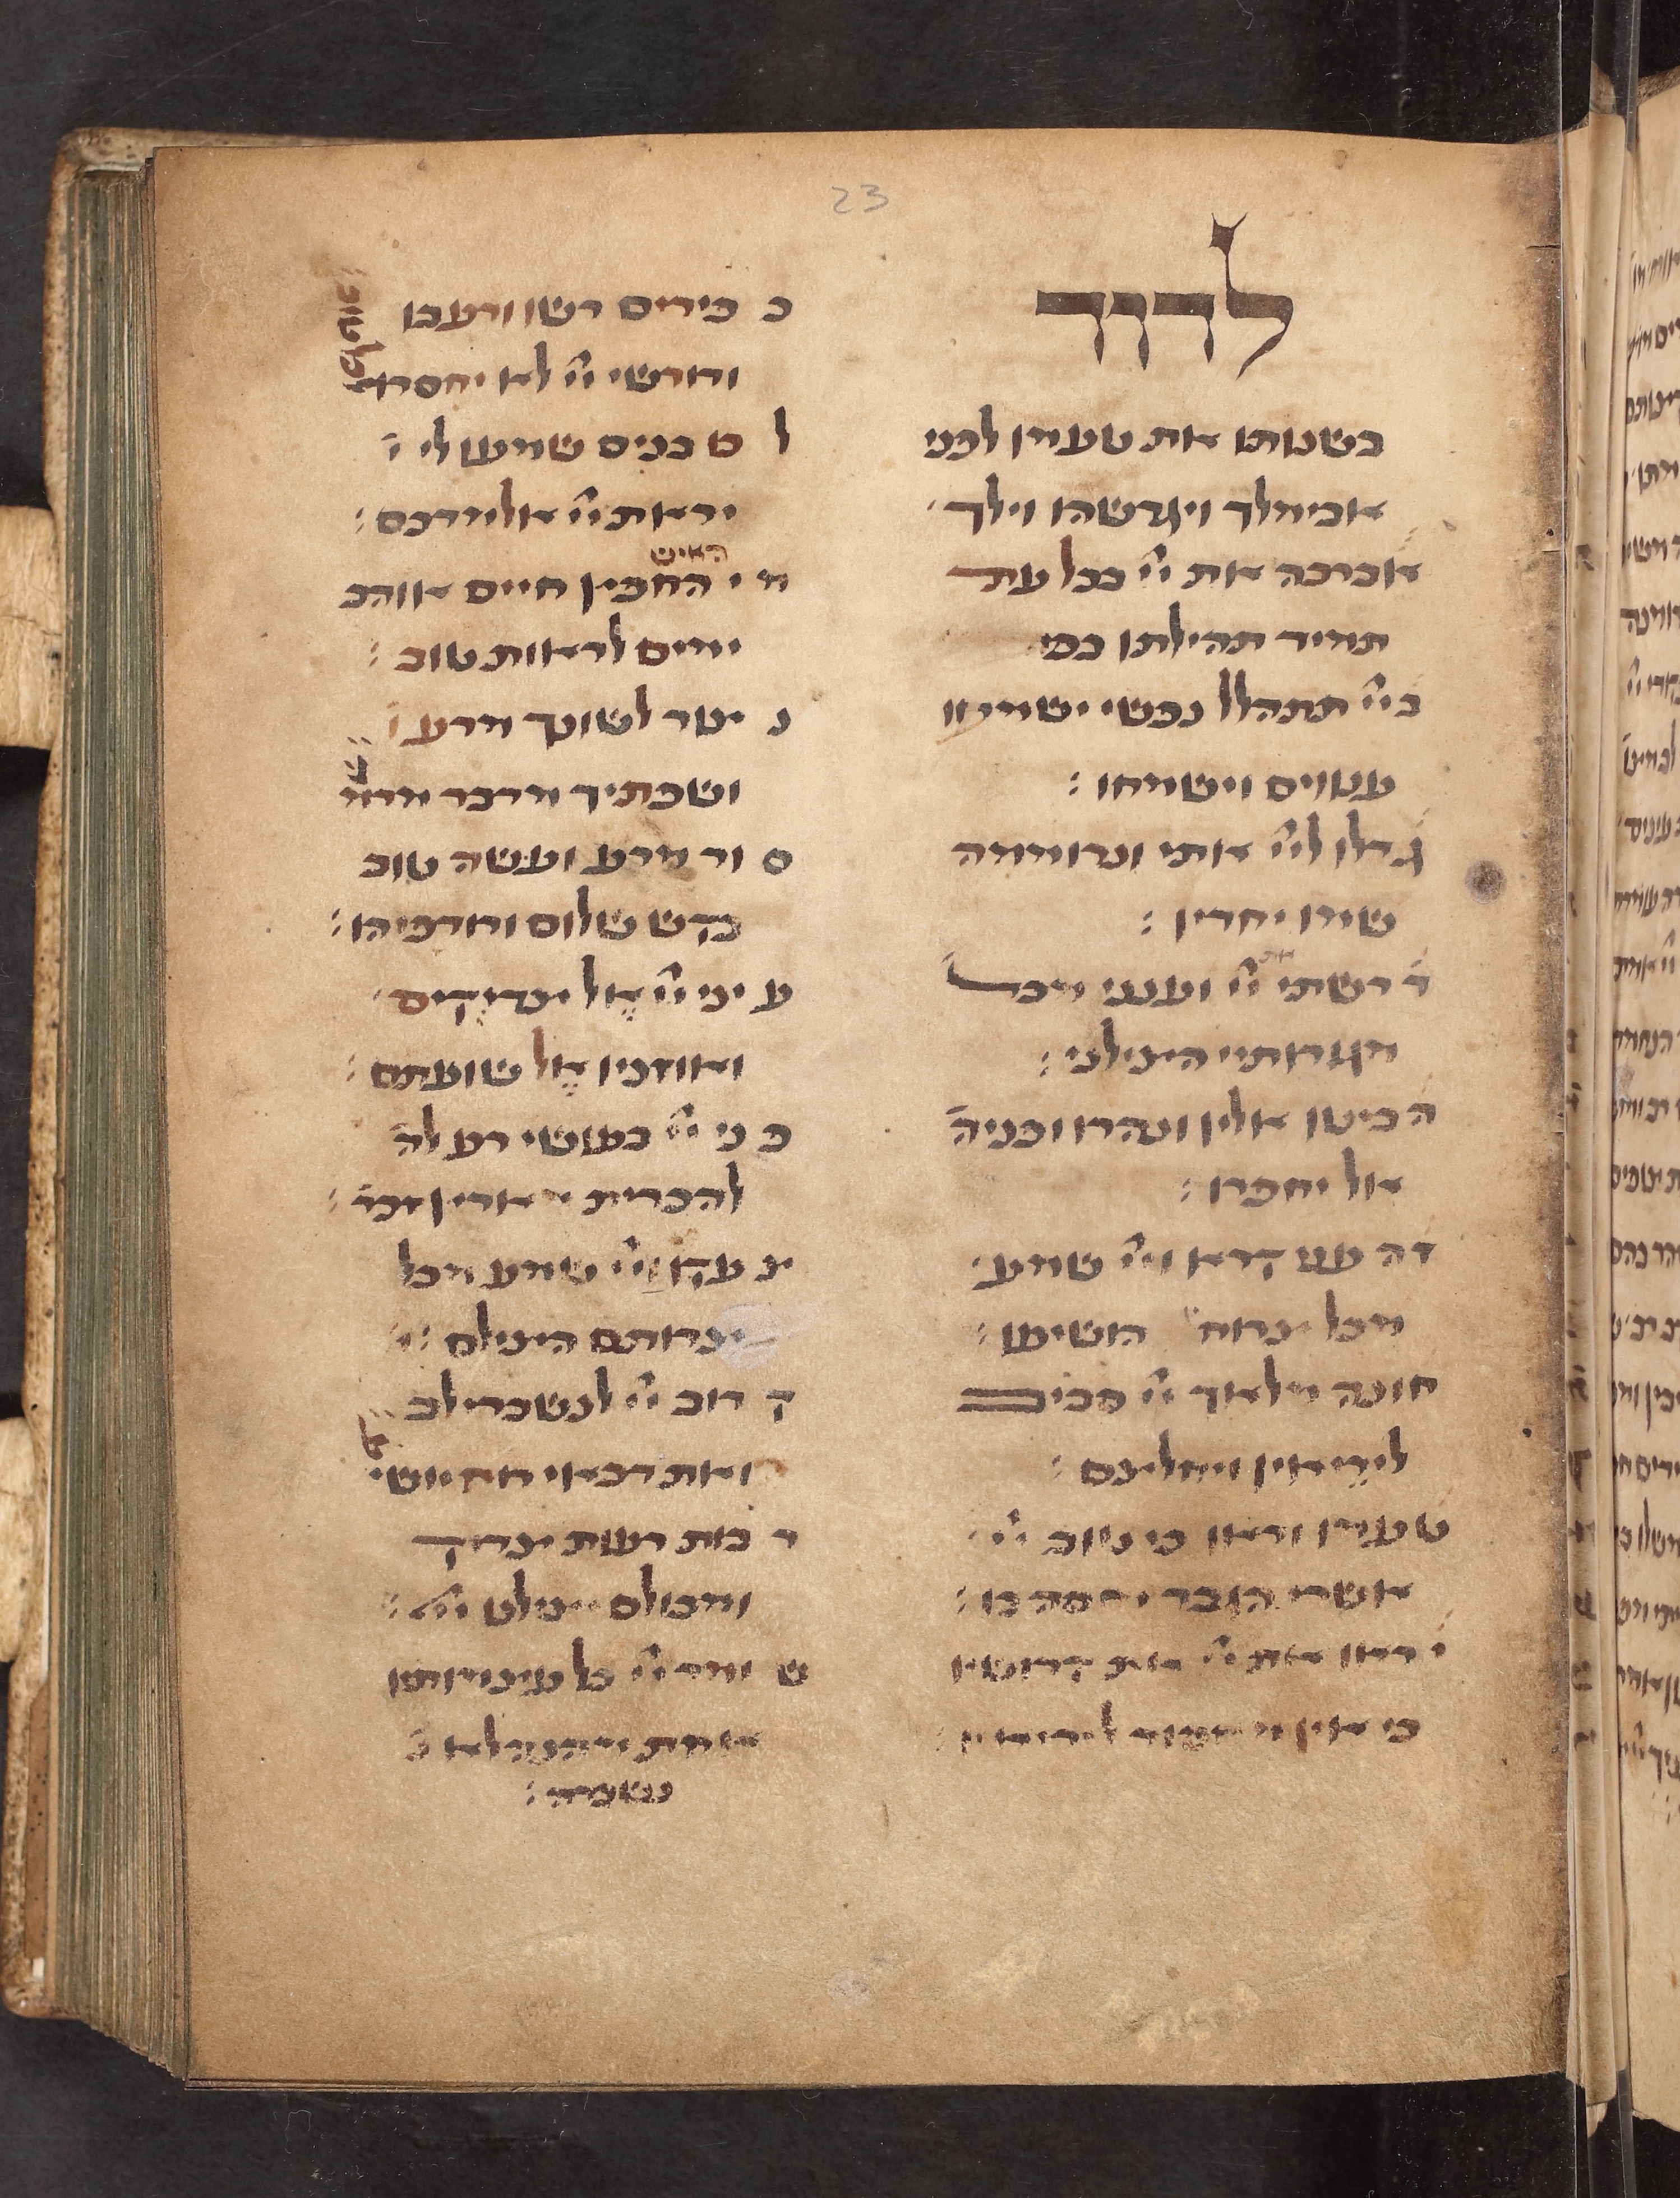 23
לדוד
בשנותו את טעמו לפני
אבימלך ויגרשהו וילך
אברכה את ייי בכל עת
תמיד תהילתו בפי
בייי תתהלל נפשי ישמעו
ענוים וישמחו :
גדלו לייי אתי ונרוממה
שמו יחדיו :
דרשתי את ייי וענני מכל
מגורתיי הצילני :
הביטו אליו ונהרו ופניה
אל יחפרו :
זה עני קרא וייי שמע
מכל צרות הושיעו :
חונה מלאך ייי סביב
ליריאיו ויחלצם :
טעמו וראו כי טוב ייי
אשרי הגבר יחסה בו :
יראו את ייי קדושיו
כי אין מחסור ליריאיו
כ פירים רשו ורעבו
ודורשי ייי לא יחסרו
כל טוב :
ל כו בנים שמעו לי
יראת ייי אלמדכם :
האיש
מ י החפץ חיים אוהב
ימים לראות טוב :
נ צור לשונך מרע
ושפתיך מדבר מרמ
ס ור מרע ועשה טוב
בקש שלום ורודפיהו :
ע יני ייי אל צדיקים
ואוזניו אל שועתם :
פ ני ייי בעושי רע לה
להכרית מארץ זכר :
צ עקו וייי שמע מכל
צרותם הצילם :
ק רוב ייי לנשברי לב
ואת דכאי רוח יושי
ר בות רעות צדיק
ומכולם יצילט ייי :
ש ומר ייי כל עצמותו
אחת מהנה לא
נשברה :